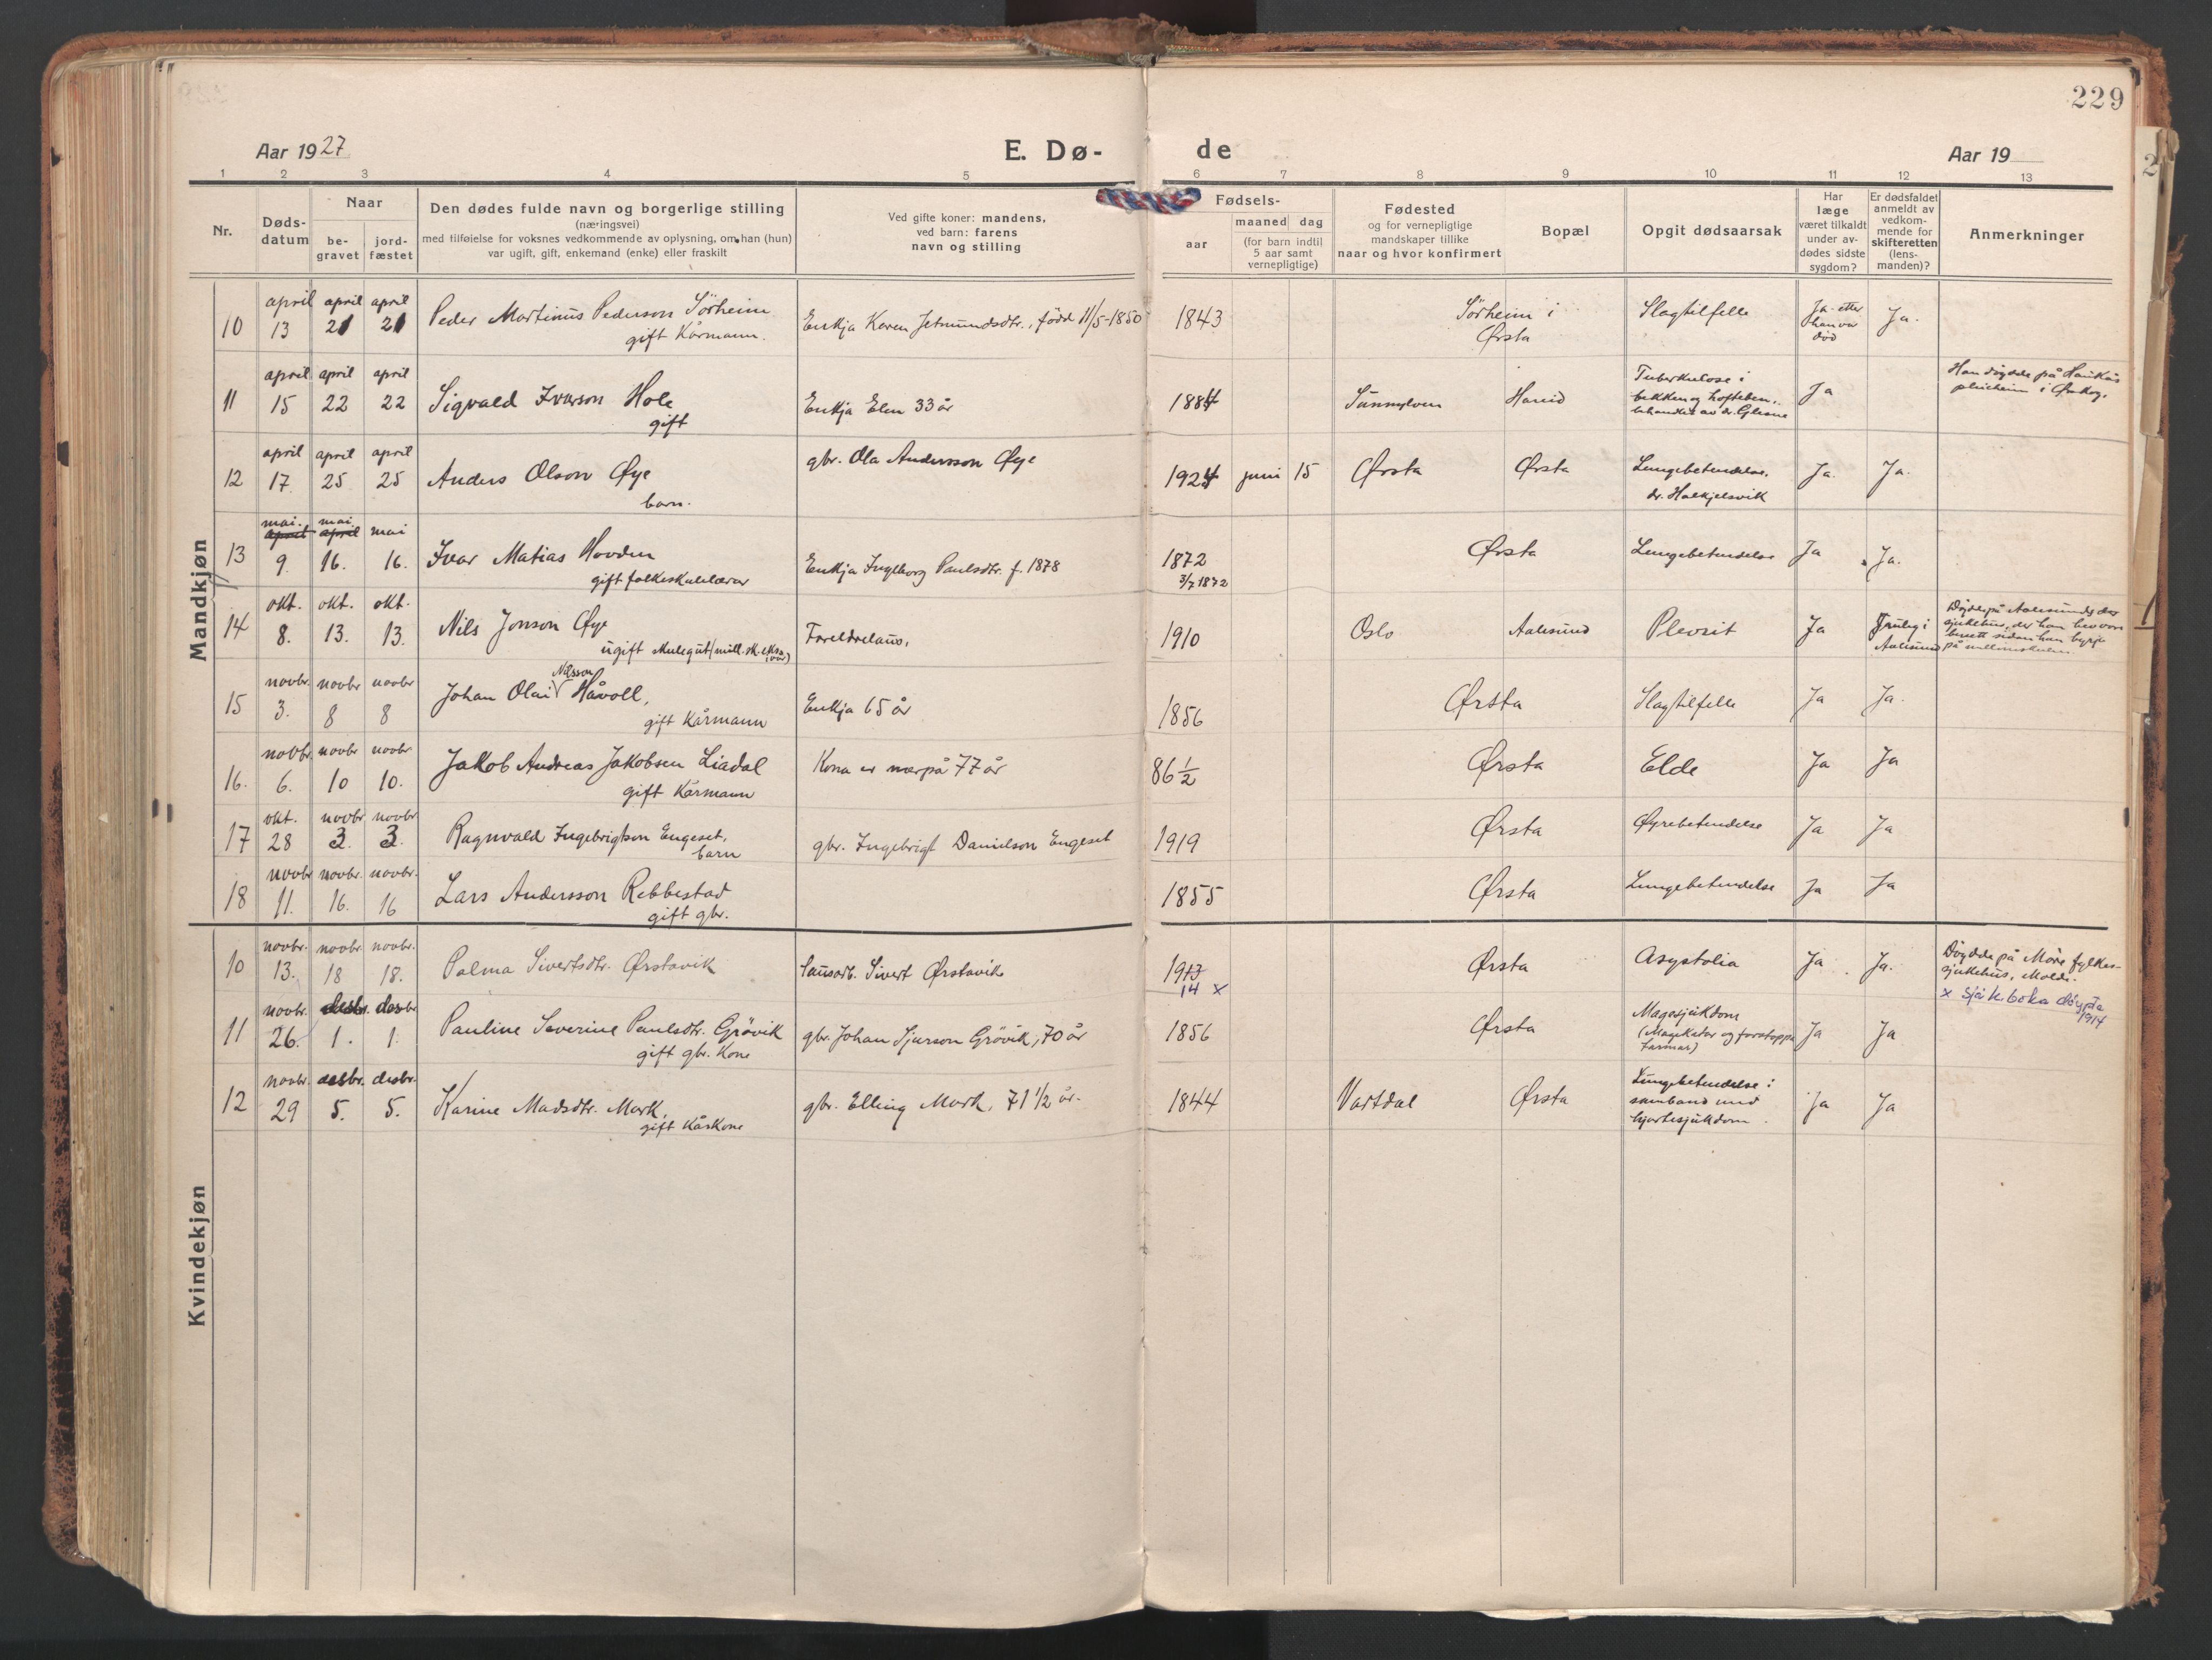 229
Aar 1927
E. Dø-
de
Aar 19
1 2 3 4 5 6 7 8 9 10 11 12 13
Nr.
Døds-
datum
Naar
be-
gravet
jord-
fæstet
Den dødes fulde navn og borgerlige stilling
(næringsvei)
med tilføielse for voksnes vedkommende av oplysning, om han (hun)
var ugift, gift, enkemand (enke) eller fraskilt
Ved gifte koner: mandens,
ved barn: farens
navn og stilling
Fødsels-
aar
maaned dag
(for barn indtil
5 aar samt
vernepligtige)
Fødested
og for vernepligtige
mandskaper tillike
naar og hvor konfirmert
Bopæl
Opgit dødsaarsak
Har
læge
været tilkaldt
under av-
dødes sidste
sygdom?
Er dødsfaldet
anmeldt av
vedkom-
mende for
skifteretten
(lens-
manden)?
Anmerkninger
Mandkjøn
10 april 13 april 21 april 21 Peder Martinus Pederson Sörheim
gift Kårmann.
Enkja Karen Jetmundsdtr., född 11/5-1850
1843 Sörheim i
Ørsta
Slagtilfelle
Ja. etter
han var
död
Ja.
11 april 15 april 22 april 22 Sigvald Ivarson Hole
gift
Enkja Elen 33 år
1884 Sunnylven Hareid
Tuberkulose i
bekken og hofteben,
behandlet av dr. Glesne
Ja
Han döydde på
pleieheim i
12 april 17 april 25 april 25 Anders Olson Øye
barn.
gbr. Ola Andersson Øye
1924 juni 15 Ørsta Ørsta
Lungebetendelse.
dr. Halkjelsvik
Ja. Ja.
13 mai. april 9. mai. april 16. mai 16. Ivar Matias Hovden
gift folkeskulelærar
Enkja Ingeborg Paulsdtr. f. 1878
1872
3/7 1872
Ørsta
Lungebetendelse Ja Ja.
14 okt. 8. okt. 13. okt. 13. Nils Jonson Øye
ugift skulegut
Foreldrelaus.
1910 Oslo Aalesund Plevrit Ja
Truleg i
Aalesund
Döydde på Aalesunds
sjukehus, der han hev vore
burtt sidan han byrja
på millomskulen.
15 novbr. 3. novbr 8 novbr 8 Johan Olai Nilsson Håvoll,
gift Kårmann
Enkja 65 år
1856 Ørsta Slagtilfelle Ja Ja.
16. novbr. 6. novbr 10 novbr 10. Jakob Andreas Jakobsen Liadal
gift Kårmann
Kona er nærpå 77 år
86 1/2 Ørsta Elde Ja Ja
17 okt. 28 novbr 3. novbr 3. Ragnvald Ingebrigtson Engeset,
barn
gbr. Ingebrigt Danielson Engeset
1919 Ørsta Øyrebetendelse Ja Ja
18 novbr 11. novbr. 16. novbr. 16 Lars Andersson Rebbestad
gift gbr.
1855 Ørsta Lungebetendelse Ja Ja
Kvindekjøn
10 novbr. 13. novbr 18 novbr. 18. Palma Sivertsdtr. Ørstavik
Sivert Ørstavik
1913
14 x
Ørsta Asystolia Ja Ja.
Döydde på Möre fylkes-
sjukehus, Molde.
x Sjå k.boka döypte
1914
11 novbr. 26. desbr. 1. desbr 1. Pauline Severine Paulsdtr. Grövik
gift gbr. Kone
gbr. Johan Sjurson Grövik, 70 år
1856 Ørsta
Magesjukdom
(Magekatar og forstoppa
tarmar)
Ja Ja
12 novbr. 29 desbr. 5. desbr. 5. Karine Madsdtr. Mork,
gift Kårkone
gbr. Elling Mork, 71 1/2 år.
1844 Vartdal Ørsta
Lungebetendelse i
samband med
hjartesjukdom.
Ja Ja